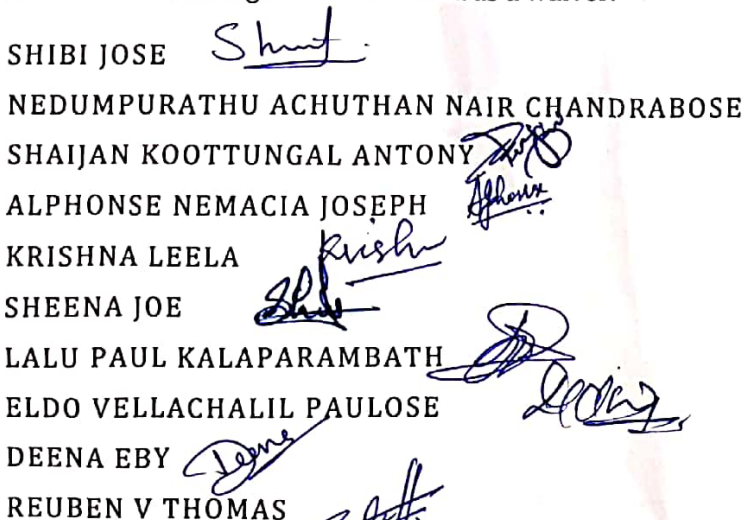 SHIBI JOSE
NEDUMPURATHU ACHUTHAN NAIR CHANDRABOSE
SHAIJAN KOOTTUNGAL ANTONY
ALPHONSE NEMACIA JOSEPH
KRISHNA LEELA Krishn
SHEENA JOE
LALU PAUL KALAPARAMBATH
ELDO VELLACHALIL PAULOSE
DEENA EBY Deena
REUBEN V THOMAS